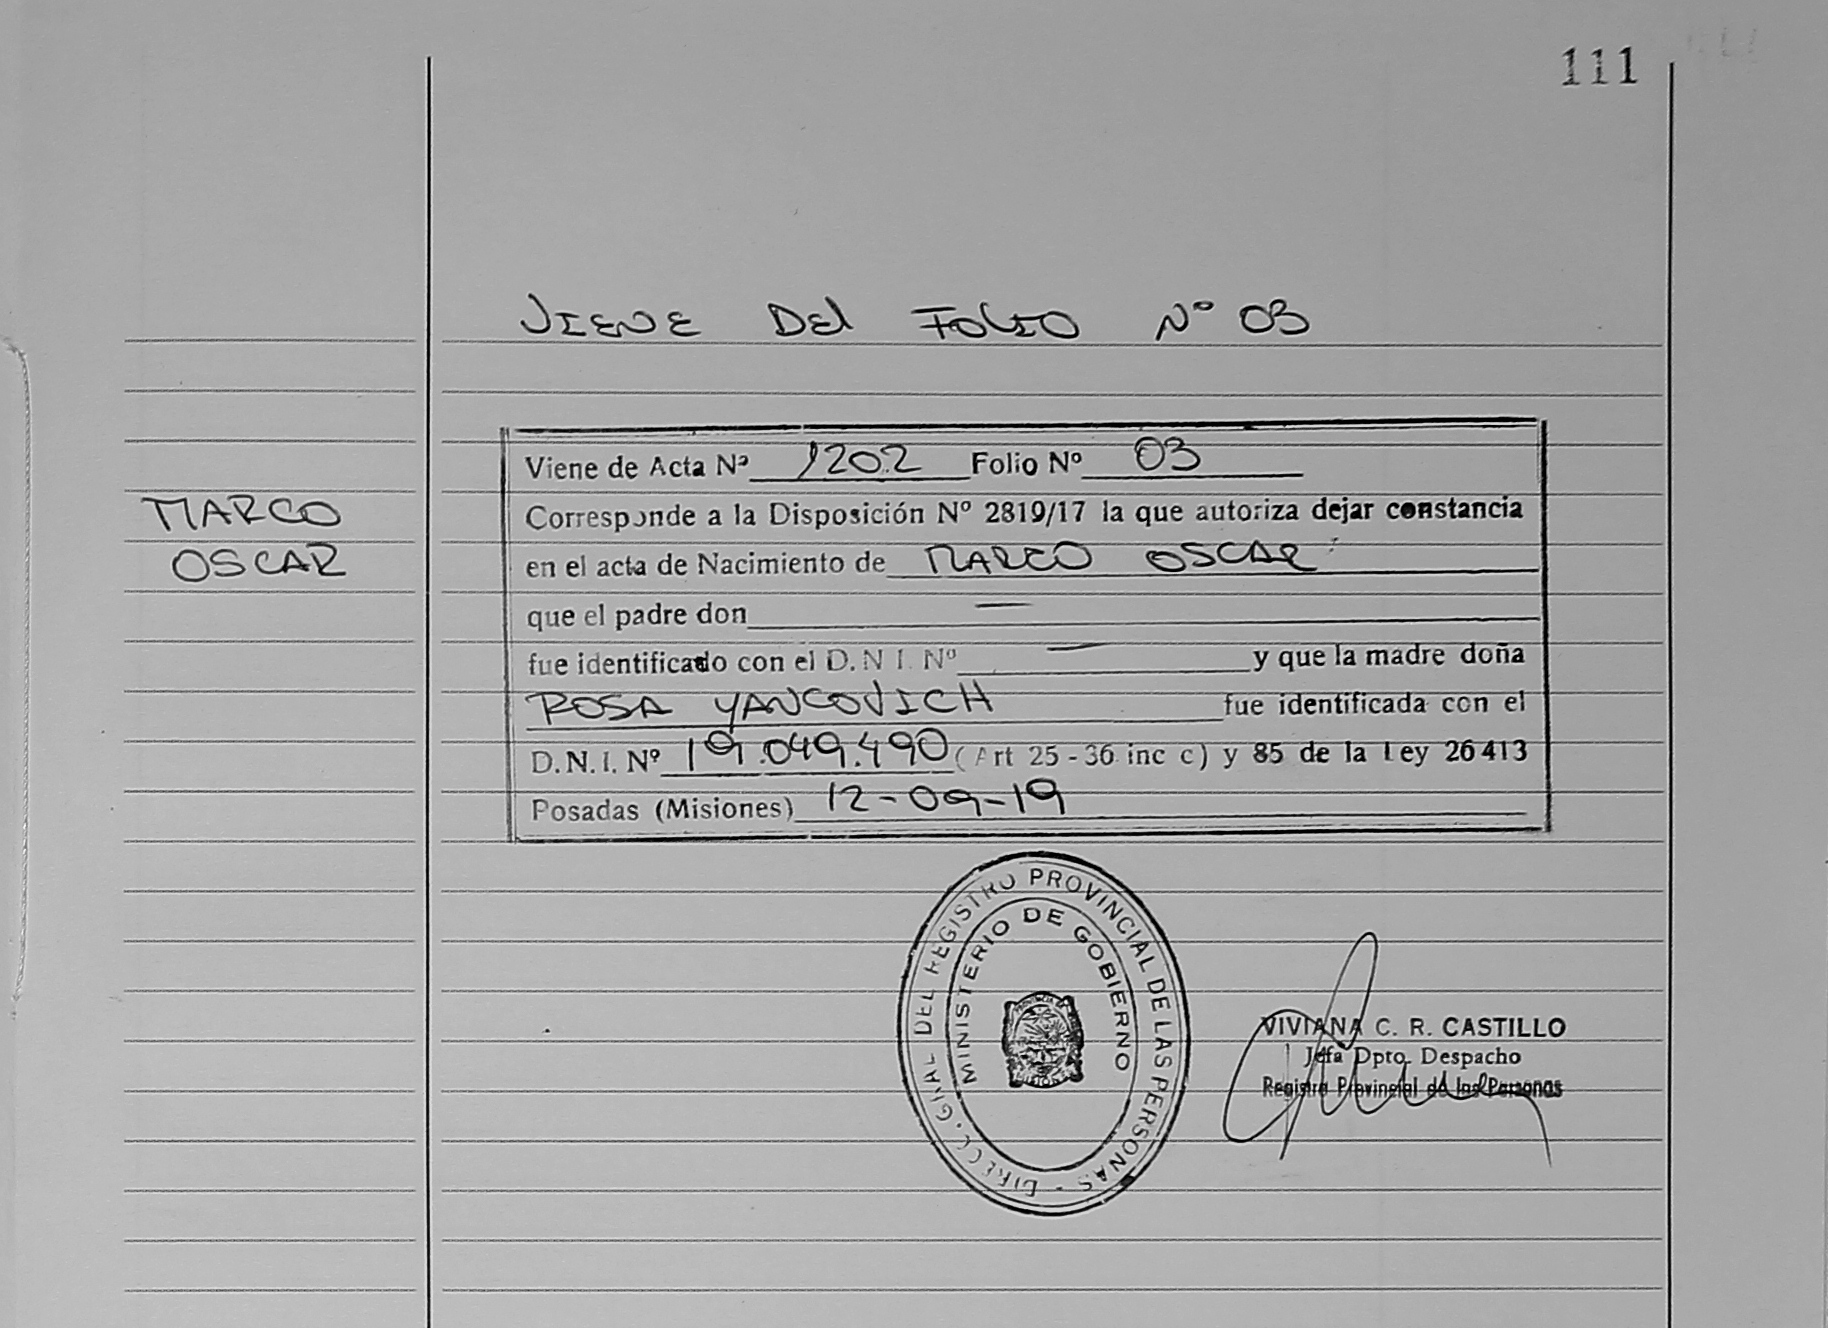 111
VIENE DEL FOLIO Nº 03
Viene de Acta Nº 1202 Folio Nº 03
MARCO
Corresponde a la Disposición Nº 2819/17 la que autoriza dejar constancia
OSCAR
en el acta de Nacimiento de MARCO OSCAR
que el padre don —
fue identificado con el D.N I. Nº — y que la madre doña
ROSA YANCOVICH fue identificada con el
D.N.I. Nº 19.049.490 (Art 25 - 36 inc c) y 85 de la Ley 26413
Posadas (Misiones) 12-09-19
DIRECC. GRAL DEL REGISTRO PROVINCIAL DE LAS PERSONAS -
MINISTERIO DE GOBIERNO
VIVIANA C. R. CASTILLO
Jefa Dpto. Despacho
Registro Provincial de las Personas